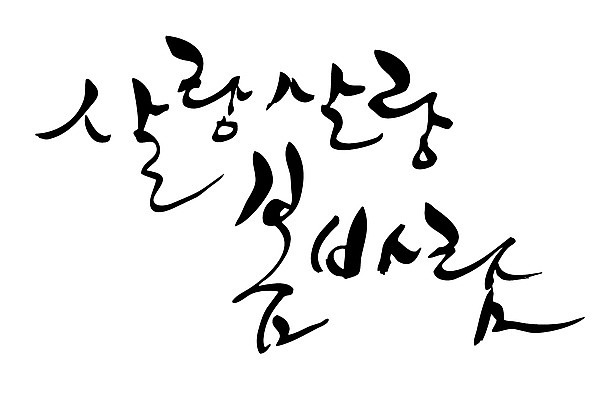 살랑살랑
봄바람